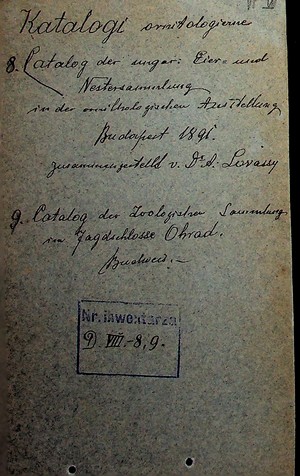 Katalogi ornitologiczne
8. Catalog der ungar: Eier- und
Nestersammlung
in der ornithologischen Ausstellung
Budapest 1891.
zusammengestellt v. Dr A. Lovassy
9. Catalog der Zoologischen Sammlung
im Jagdschlosse Ohrad.
Budweis.-
Nr. inwentarza
9) VIII.-8,9.